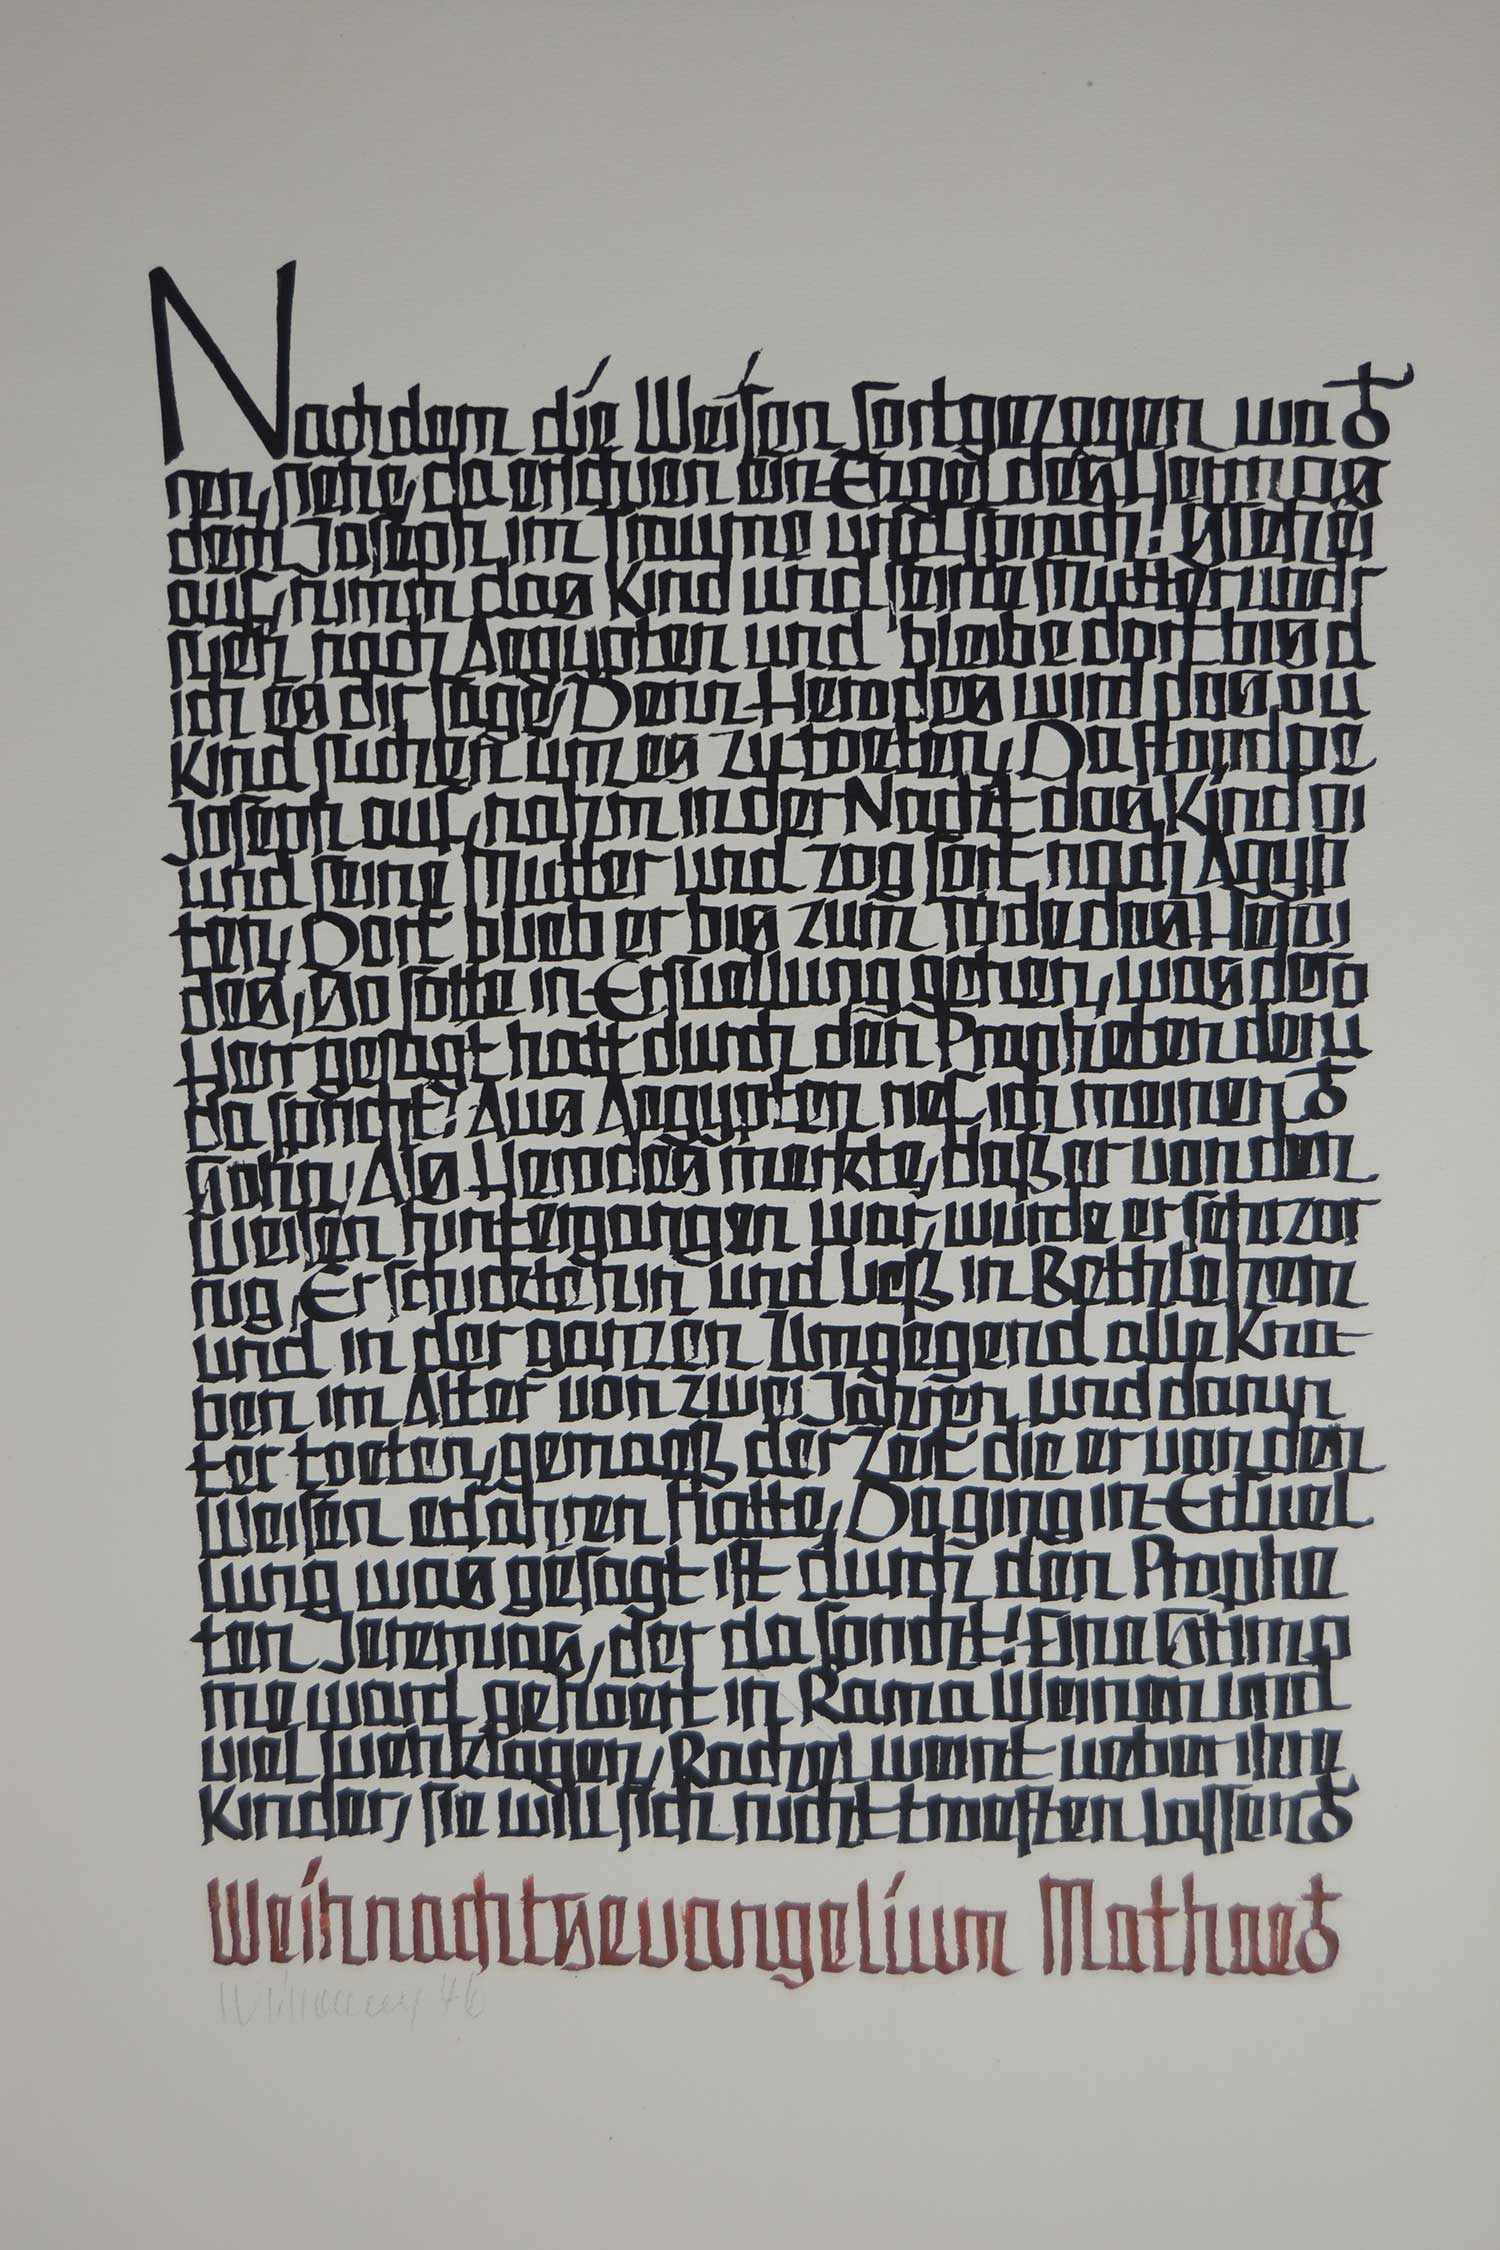 Nachdem die Weisen fortgezogen wa
ren, siehe, da erschien ein Engel des Herrn
dem Joseph im Traume und sprach: Steh
auf, nimm das Kind und seine Mutter und
flieh nach Aegypten und bleibe dort bis
ich es dir sage, Denn Herodes wird das
Kind suchen um es zu toeten, Da stand
Joseph auf, nahm in der Nacht das Kind
und seine Mutter und zog fort nach Ägyp
ten, Dort blieb er bis zum Tode des Hero
des, So sollte in Erfuellung gehen, was der
Herr gesagt hatt durch den Propheten der
da spricht: Aus Aegypten rief ich meinen
Sohn, Als Herodes merkte, daß er von den
Weisen hintergangen war, wurde er sehr zor
nig, Er schickte hin und ließ in Bethlehem
und in der ganzen Umgegend alle Kna
ben im Alter von zwei Jahren und darun
ter toeten, gemaeß der Zeit die er von den
Weisen erfahren hatte, Da ging in Erfuel
lung was gesagt ist durch den Prophe
ten Jeremias, der da spricht: Eine Stim
me ward gehoert in Rama Weinen und
viel wehklagen, Rachel weint ueber ihre
Kinder, sie will sich nicht troesten lassen
Weihnachtsevangelium Mathae
46